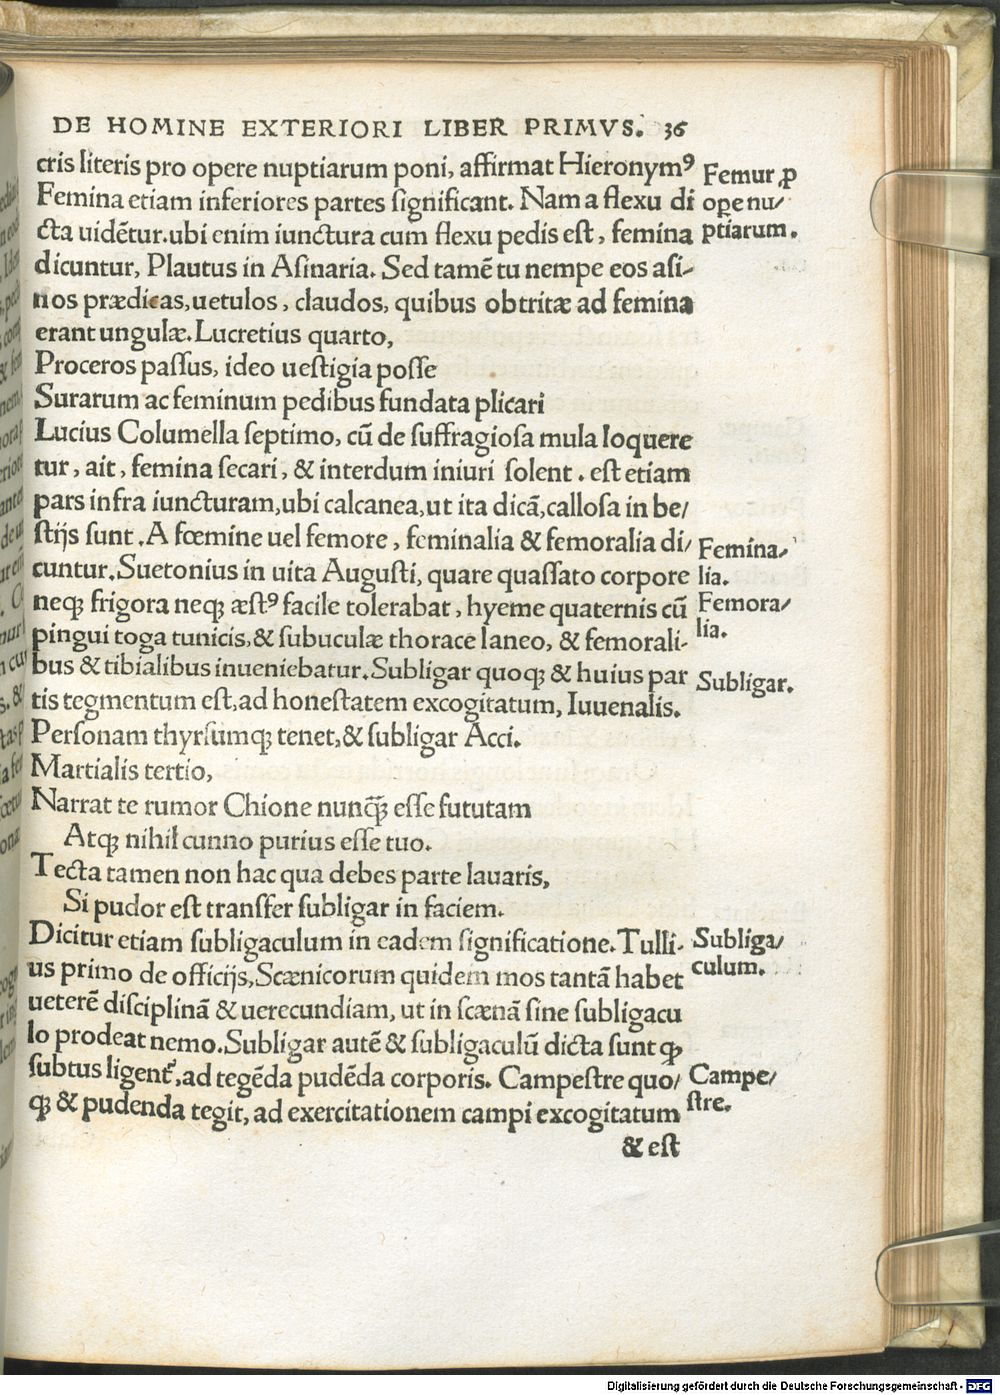 DE HOMINE EXTERIORI LIBER PRIMVS. 36
cris literis pro opere nuptiarum poni, affirmat Hieronymꝰ
Femur ꝓ
Femina etiam inferiores partes ſignificant. Nam a flexu di
opere nu/
cta uidẽtur.ubi enim iunctura cum flexu pedis eſt, femina
ptiarum.
dicuntur, Plautus in Aſinaria. Sed tamẽ tu nempe eos aſi/
nos prædicas,uetulos, claudos, quibus obtritæ ad femina
erant ungulæ.Lucretius quarto,
Proceros paſſus, ideo ueſtigia poſſe
Surarum ac feminum pedibus fundata plicari
Lucius Columella ſeptimo, cũ de ſuffragioſa mula loquere
tur, ait, femina ſecari, & interdum iniuri ſolent. eſt etiam
pars infra iuncturam,ubi calcanea,ut ita dicã,calloſa in be/
ſtijs ſunt.A fœmine uel femore, feminalia & femoralia di/
Femina/
cuntur.Suetonius in uita Auguſti, quare quaſſato corpore
lia.
neqꝫ frigora neqꝫ æſtꝰ facile tolerabat, hyeme quaternis cũ
Femora/
pingui toga tunicis,& ſubuculæ thorace laneo, & femorali-
lia.
bus & tibialibus inueniebatur.Subligar quoqꝫ & huius par
Subligar.
tis tegmentum eſt,ad honeſtatem excogitatum, Iuuenalis.
Perſonam thyrſumqꝫ tenet,& ſubligar Acci.
Martialis tertio,
Narrat te rumor Chione nunqꝫ̃ eſſe fututam
Atqꝫ nihil cunno purius eſſe tuo.
Tecta tamen non hac qua debes parte lauaris,
Si pudor eſt transfer ſubligar in faciem.
Dicitur etiam ſubligaculum in eadem ſignificatione.Tulli-
Subliga/
us primo de officijs,Scænicorum quidem mos tantã habet
culum.
ueterẽ diſciplinã & uerecundiam, ut in ſcænã ſine ſubligacu
lo prodeat nemo.Subligar autẽ & ſubligaculũ dicta ſunt ꝙ
ſubtus ligent᷑,ad tegẽda pudẽda corporis. Campeſtre quo/
Campe/
qꝫ & pudenda tegit, ad exercitationem campi excogitatum
ſtre.
& eſt
Digitalisierung gefördert durch die Deutsche Forschungsgemeinschaft - DFG